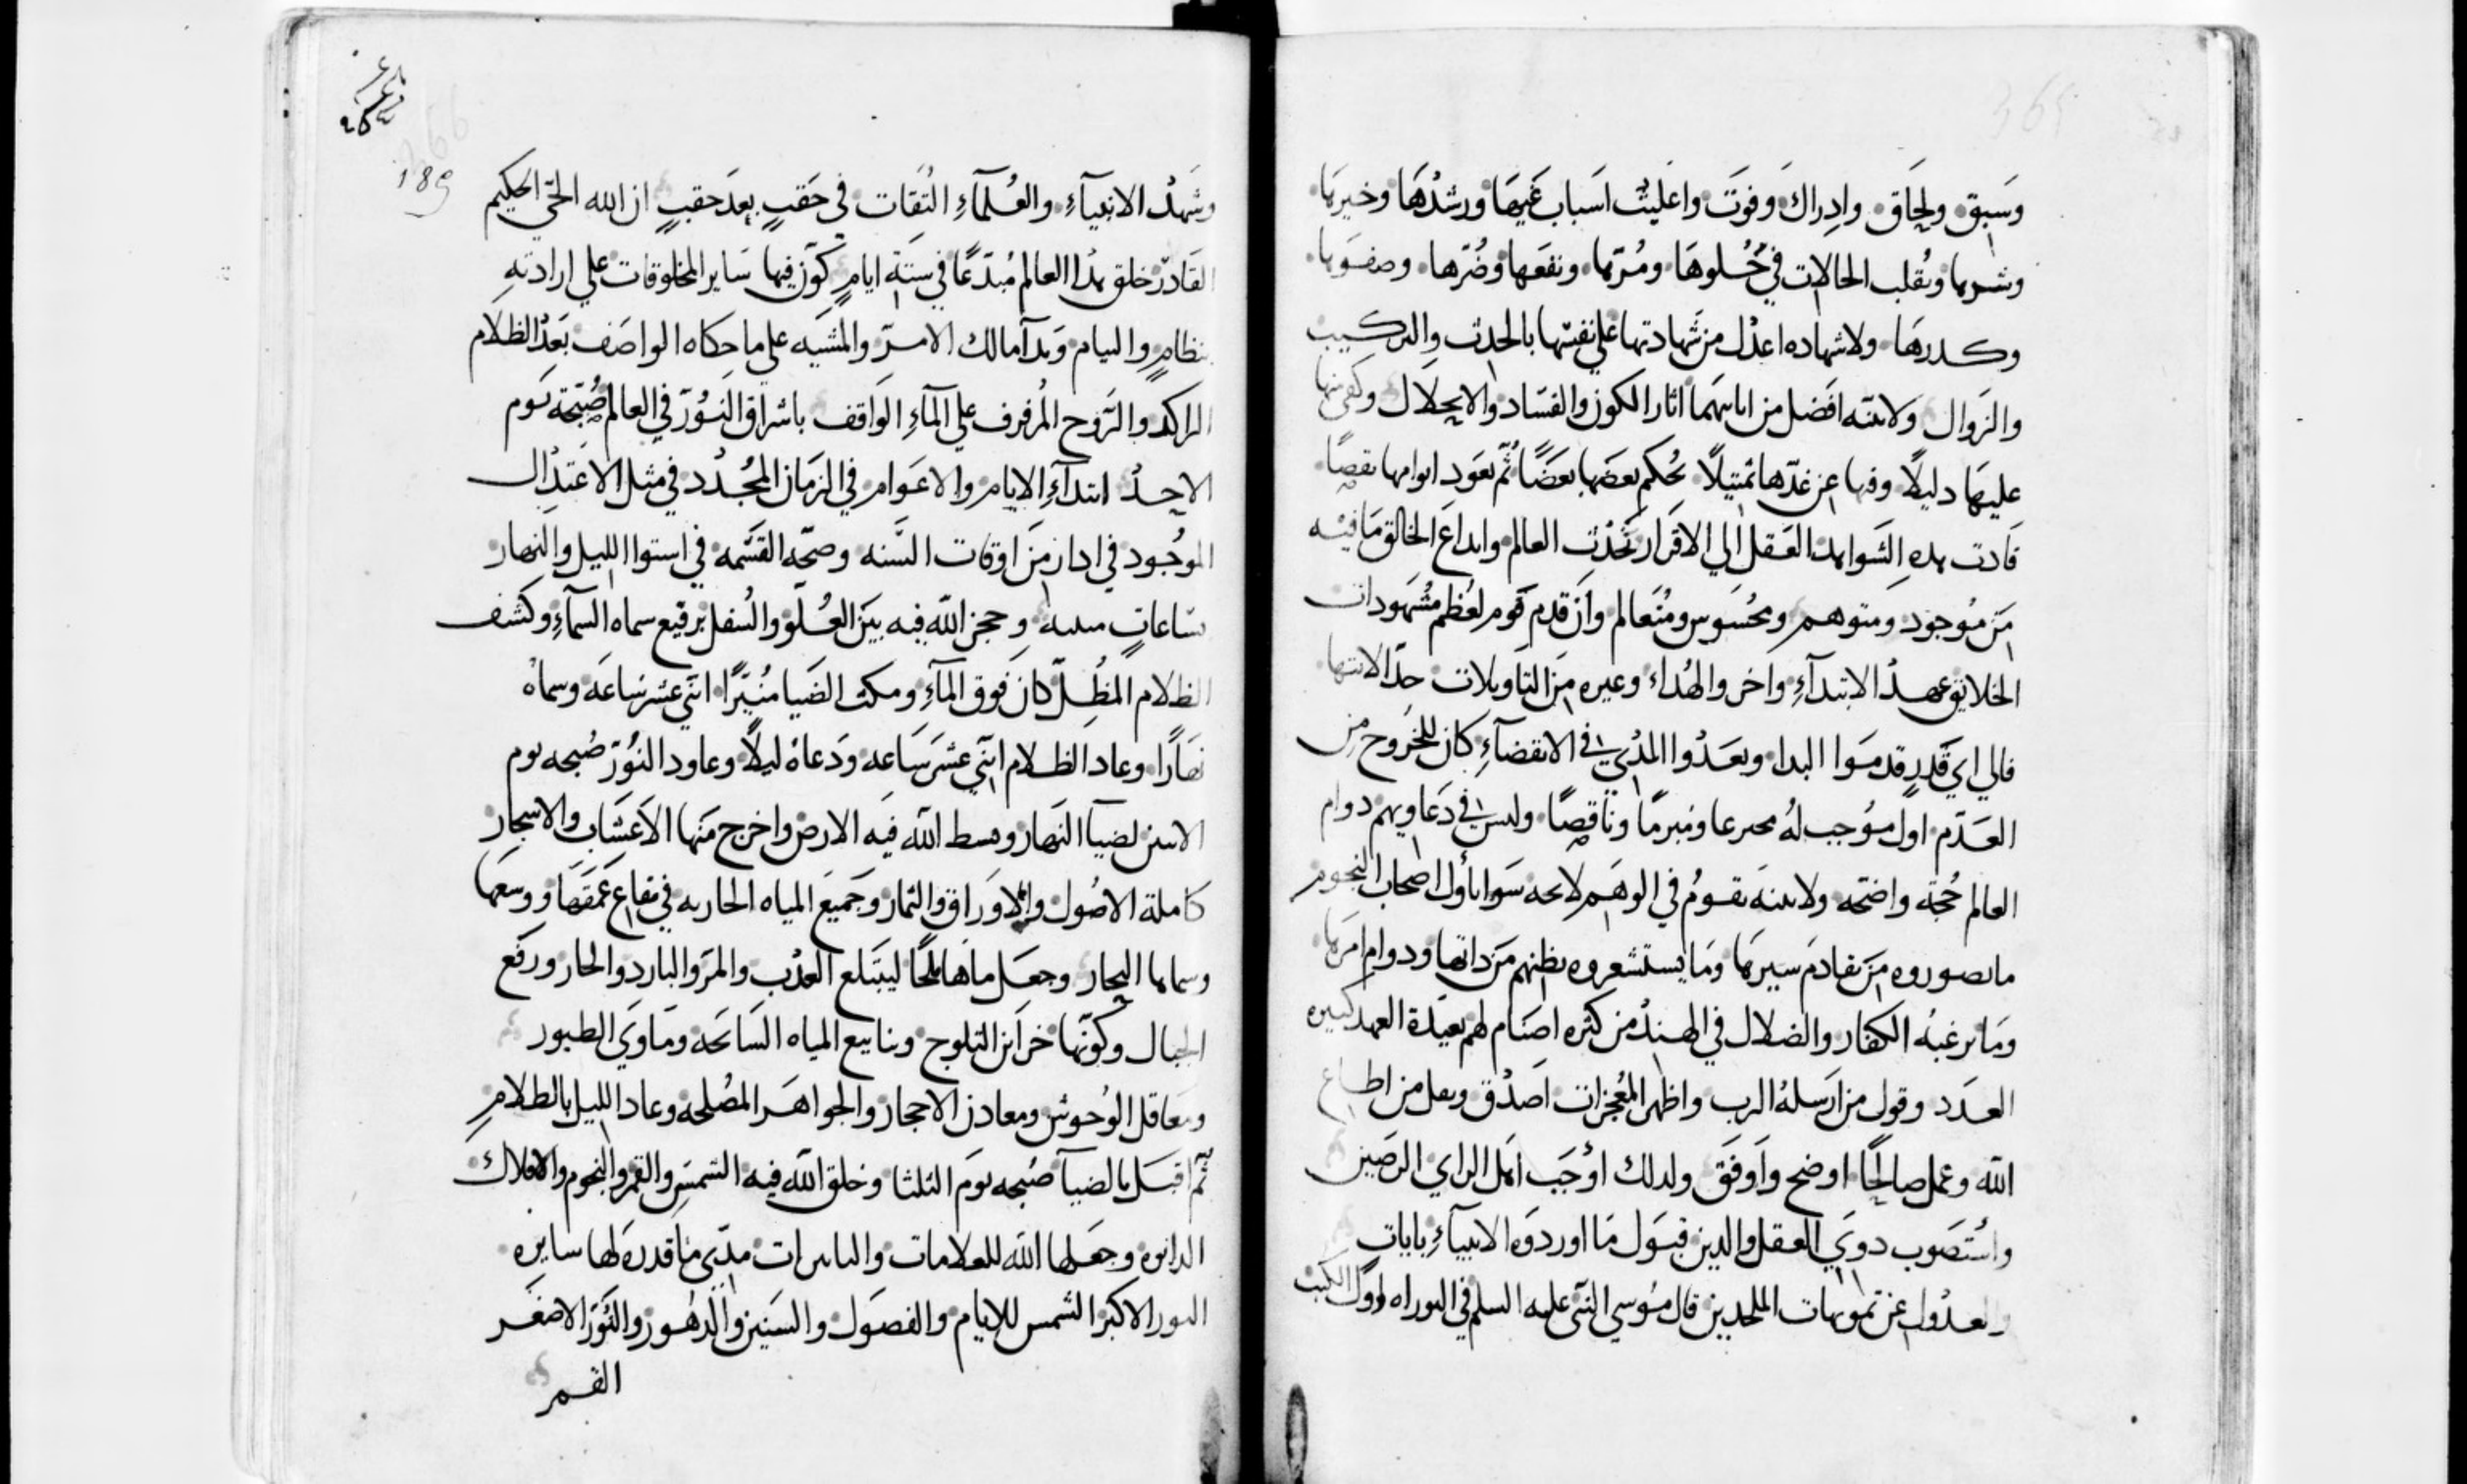 وسبق ولحاق وادراك وفوت واعليت اسباب غيها ورشدها وخيرها
وشرها وتقلب الحالات في حلوها ومرها ونفعها وضرها وصفوها
وكدرها ولا شهاده اعدل من شهادتها علي نفسها بالحدث والتركيب
والزوال ولا بينه افضل من اثار الكون والفساد والانحلال وكفي بها
عليها دليلًا وفيها عن غدها تمثيلًا يحكم بعضها بعضًا ثم يعود نقصًا
قادت هذه الشواهد العقل الي الاقرار بحدث العالم وابداع الخالق ما فيه
من موجود ومتوهم ومحسوس ومتعالم وان قدم قوم لعظم مشهودات
الخلايق عهد الابتدآءِ واخر والهداء وغيره من التاويلات حد الانتها
فالي اي قدرٍ قدموا البدا وبعدوا المدي في الانقضآءِ كان للخروح من
العدم اول موجب له ومبرمًا وناقصًا وليس في دعاويهم دوام
العالم حجة واضحه ولا بينه تقوم في الوهم لايحه سوا تأول اصحاب النجوم
ما تصوروه من تقادم سيرها وما يستشعروه بظنهم من ذاتها ودوام امرها
وما ترغبه الكفار والضلال في الهند من كثره اصنام لهم بعيدة العهد كثيره
العدد وقول من ارسله الرب واظهر المعجزات اصدق ونقل من اطاع
الله وعمل صالحًا اوضح واوفق ولذلك اوجب اهل الراي الرصين
واستصوب ذوي العقل والدين قبول ما اوردوه الانبيآءِ باياتٍ
والعدول عن تمويهات الملحدين قال موسي النبي عليه السلم في التوراه اول الكتب
٢٥٤
366
189
وشهد الانبيآءِ والعلمآءِ الثقات في حقبٍ بعد حقبٍ ان الله الحي الحكيم
القادر خلق هذا العالم مبتدعًا في ستة ايامٍ كون فيها ساير المخلوقات علي ارادتهِ
بنظامٍ والتيام وبدآ مالك الامر والمشيه علي ما حكاه الواصف بعد الظلام
الراكد والروح المرفرف علي المآءِ الواقف باشراق النور في العالم صبحة يوم
الاحد ابتدآءِ الايام والاعوام في الزمان المجدد في مثل الاعتدال
الموجود في ادار من اوقات السنه وصحه القسمه في استوا الليل والنهار
بساعاتٍ وحجز الله فيه بين العلو والسفل برقيع سماه السمآءِ وكشف
الظلام المظل كان فوق المآءِ ومكث الضيا منيرًا اثني عشر ساعه وسماه
نهارًا وعاد الظلام اثني عشر ساعه ودعاه ليلًا وعاود النور صبحه يوم
الاثنين لضيآ النهار وبسط الله فيه الارض واخرج منها الاعشاب والاشجار
كاملة الاصول والاوراق والثمار وجميع المياه الجاريه في بقاع عمقها ووسعها
وسماها البحار وجعل ماها ملحًا ليبتلع العذب والمر والبارد والحار ورفع
الجبال وكونها خزاين الثلوج وينابيع المياه السائحه وماوي الطيور
ومعاقل الوحوش ومعادن الاحجار والجواهر المصلحه وعاد الليل بالظلام
ثم اقبل بالضيآ صبحه يوم الثلثا وخلق الله فيه الشمس والقمر والنجوم والافلاك
الدايره وجعلها الله للعلامات والتاثيرات مدي ما قدره لها سايره
النور الاكبر الشمس للايام والفصول والسنين والدهور والنور الاصغر
القمر